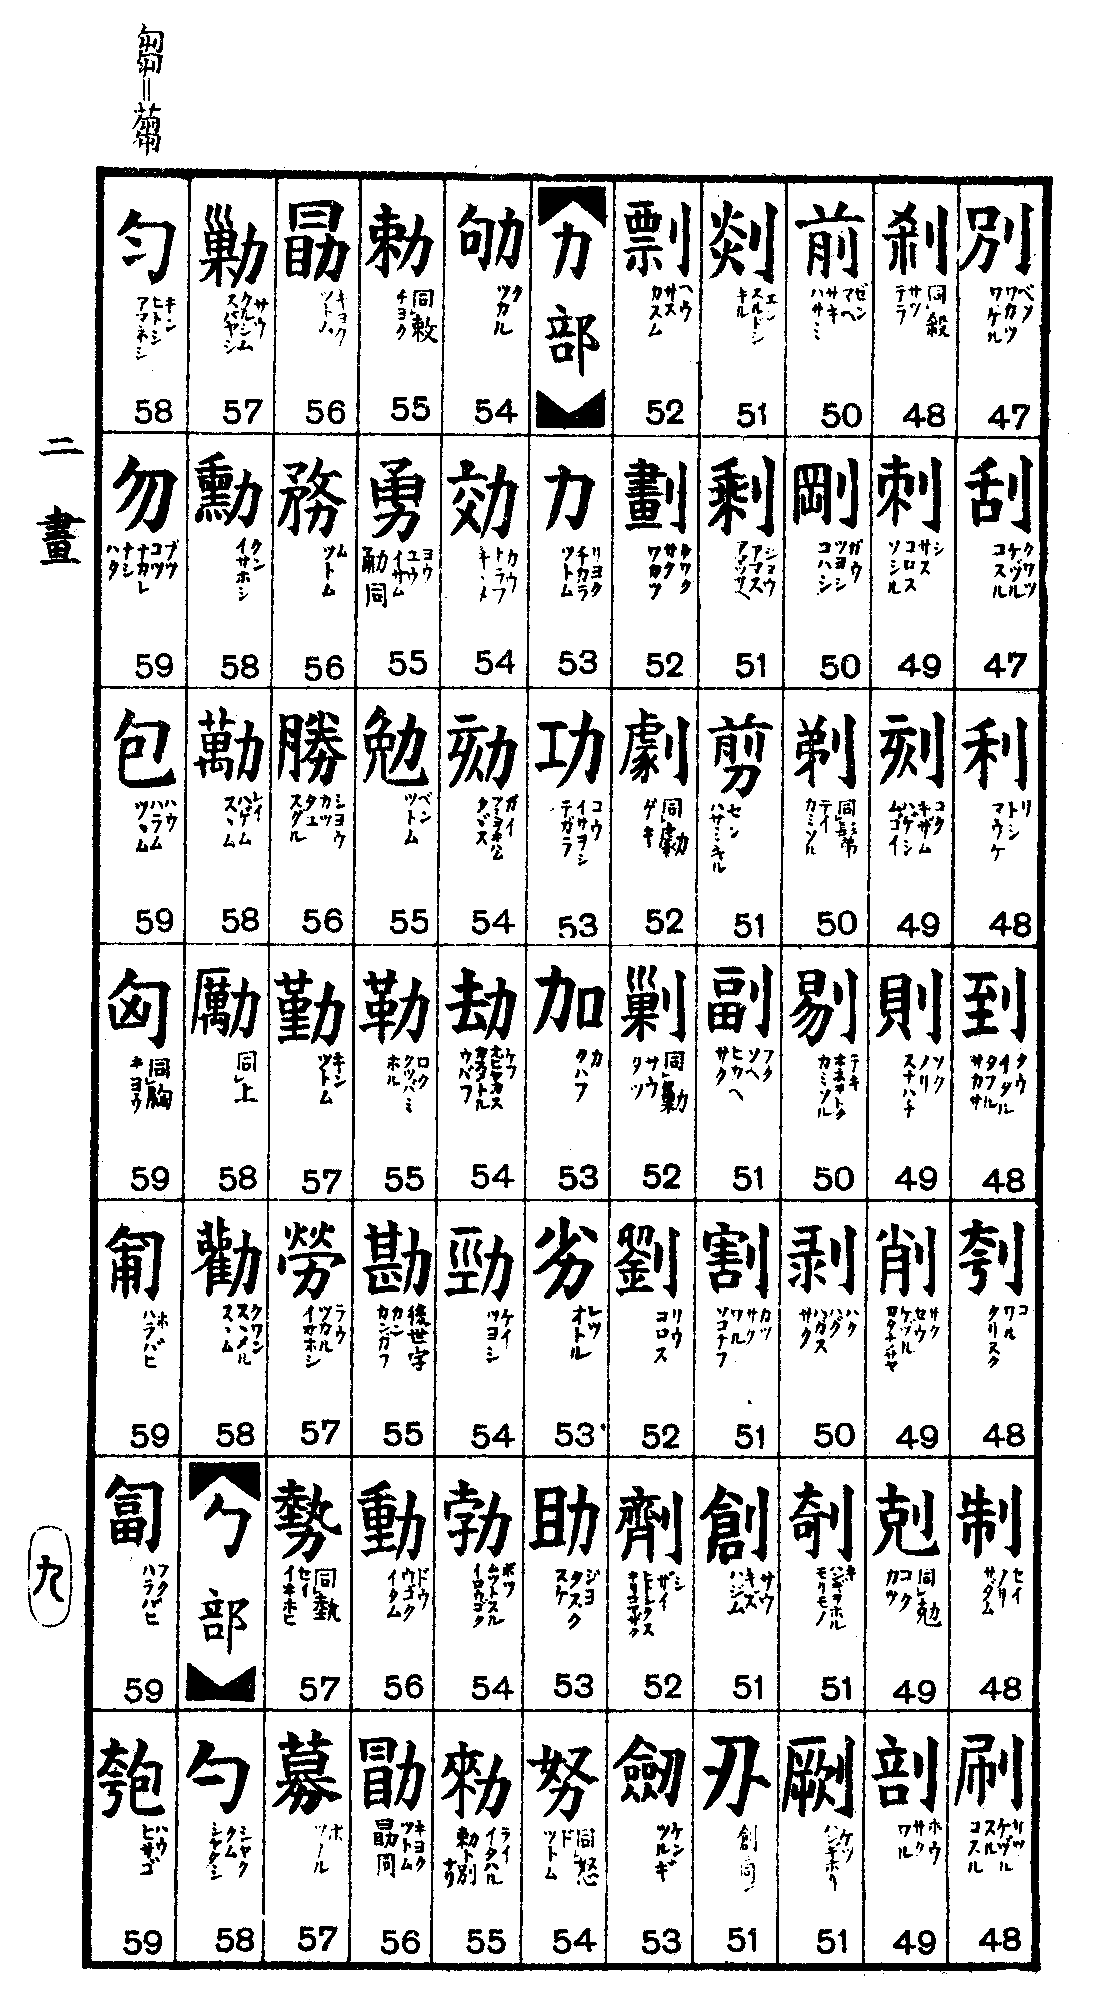 芻＝蒭
二畫
九
別 ベツ ワカツ ワケル 47
刮 クワツ ケヅル コスル 47
利 リ トシ マウケ 48
到 タウ イタル タフル サカサ 48
刳 コ ワル クリヌク 48
制 セイ ノリ サダム 48
刷 サツ ケヅル スル コスル 48
刹 同殺 サツ テラ 48
刺 シ サス コロス ソシル 49
刻 コク キザム ハゲシ ムゴイ 49
則 ソク ノリ スナハチ 49
削 サク セウ ケヅル 49
剋 同勊 コク カツ 49
剖 ホウ サク ワル 49
前 ゼン マヘ サキ ハサミ 50
剛 ガウ ツヨシ コハシ 50
剃 同髢 テイ カミソル 50
剔 テキ カミソル 50
剥 ハク ハグ ハガス サク 50
剞 キ モリモノ 51
劂 ケツ 51
剡 エン スルドシ キル 51
剩 ジョウ アマス 51
剪 セン ハサミキル 51
副 フク ソヘ ヒカヘ サク 51
割 カツ サク ワル ソコナフ 51
創 サウ キズ ハジム 51
刅 創同 51
剽 ヘウ サス カスム 52
劃 クワク サク ワカツ 52
劇 同勮 ゲキ 52
剿 同勦 サウ 52
劉 リウ コロス 52
劑 シ ザイ 52
劒 ケン ツルギ 53
力部
力 リヨク チカラ ツトム 53
功 コウ イサヲシ テガラ 53
加 カ クハフ 53
劣 レツ オトル 53
助 ジヨ タスク スケ 53
努 同怒 ド ツトム 54
劬 ク ツカル 54
効 カウ 54
劾 ガイ 54
劫 ケフ ウバフ 54
勁 ケイ ツヨシ 54
勃 ボツ 54
勑 ライ イタハル 勅ト別 55
勅 同敕 チヨク 55
勇 ヨウ ユウ イサム 勈同 55
勉 ベン ツトム 55
勒 ロク クツバミ ホル 55
勘 後世字 カン カンガフ 55
動 ドウ ウゴク イタム 56
勖 キヨク ツトム 勗同 56
勗 キヨク ツトム 56
務 ム ツトム 56
勝 シヨウ カツ タユ スグル 56
勤 キン ツトム 57
勞 ラウ ツカル イサホシ 57
勢 同㔟 セイ イキホヒ 57
募 ボ ツノル 57
勦 サウ クルシム スバヤシ 57
勳 クン イサホシ 58
勱 レイ ハゲム スヽム 58
勵 同上 58
勸 クワン スヽメル スヽム 58
勹部
勺 シヤク クム シヤクシ 58
匀 キン ヒトシ アマネシ 58
勿 ブツ コツ ナカレ ナシ ハタ 59
包 ハウ ハラム ツヽム 59
匈 同胸 キヨウ 59
匍 ホ ハラバヒ 59
匐 フク ハラバヒ 59
匏 ハウ ヒサゴ 59